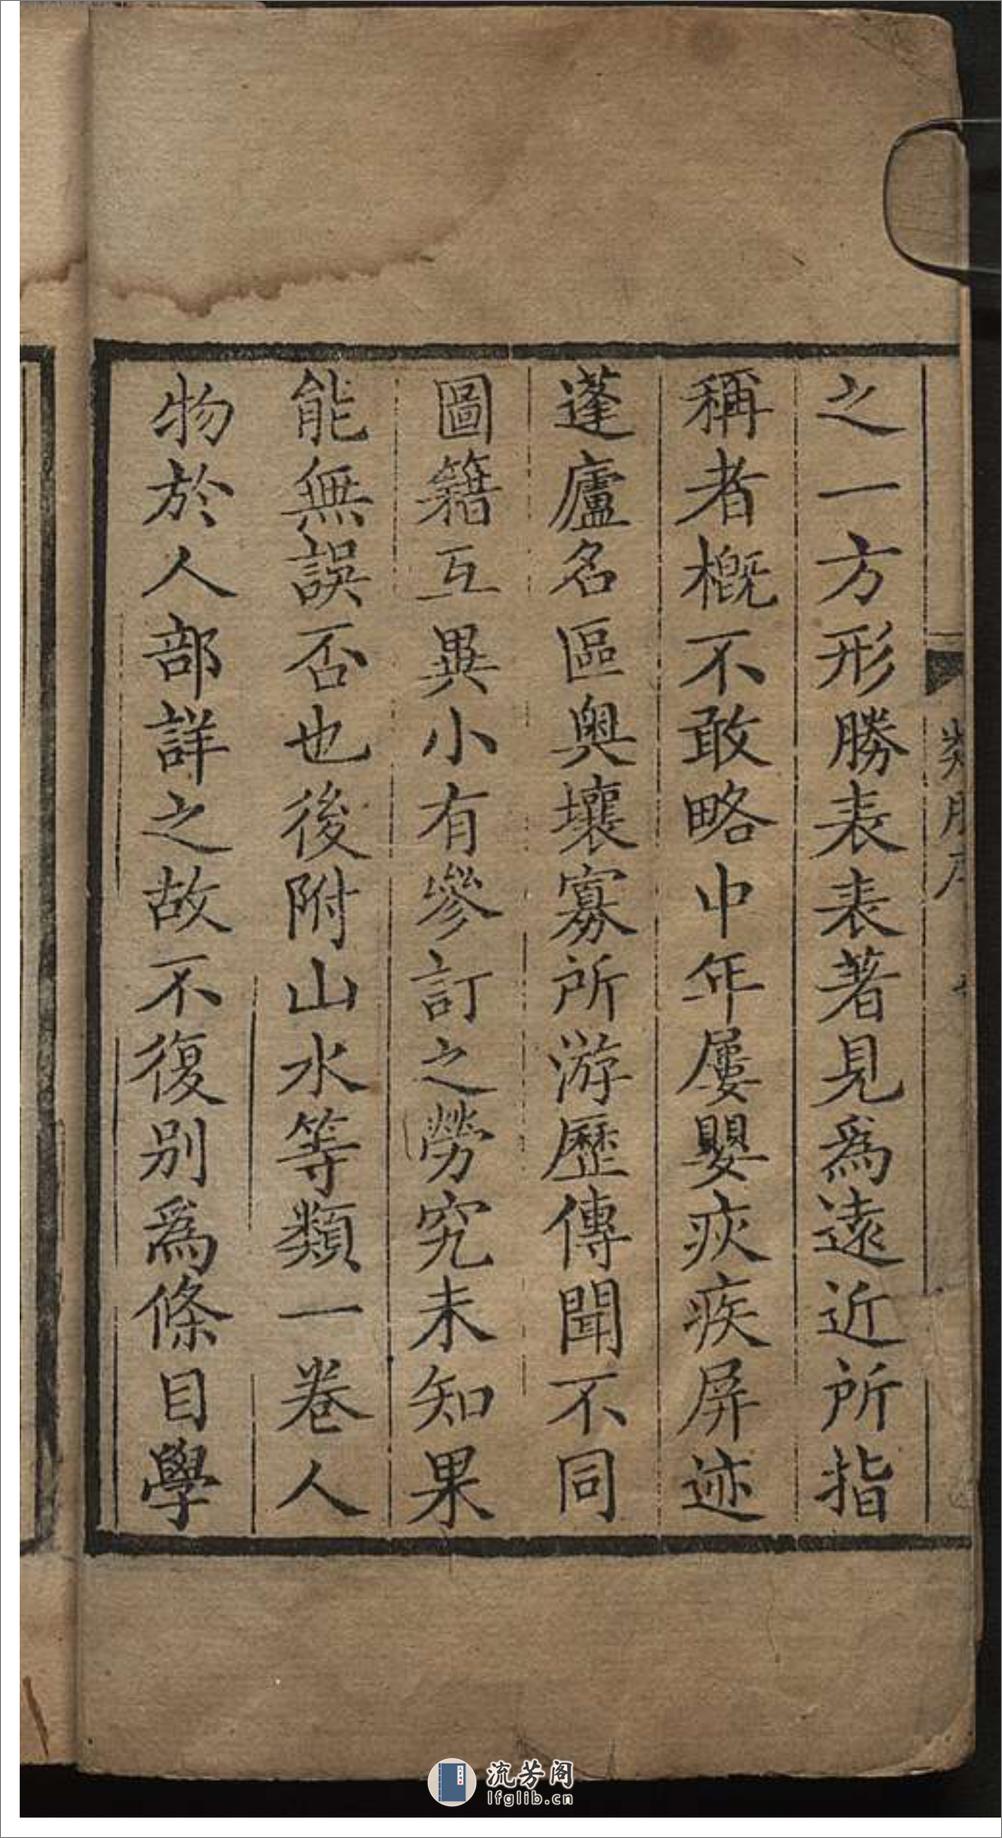 之一方形勝表表著見爲遠近所指
稱者槪不敢略中年屢嬰疢疾屏迹
蓬廬名區奥壤寡所游歷傳聞不同
圖籍互異小有參訂之勞究未知果
能無誤否也後附山水等類一卷人
物於人部詳之故不復别爲條目學
流芳阁
lfglib.cn